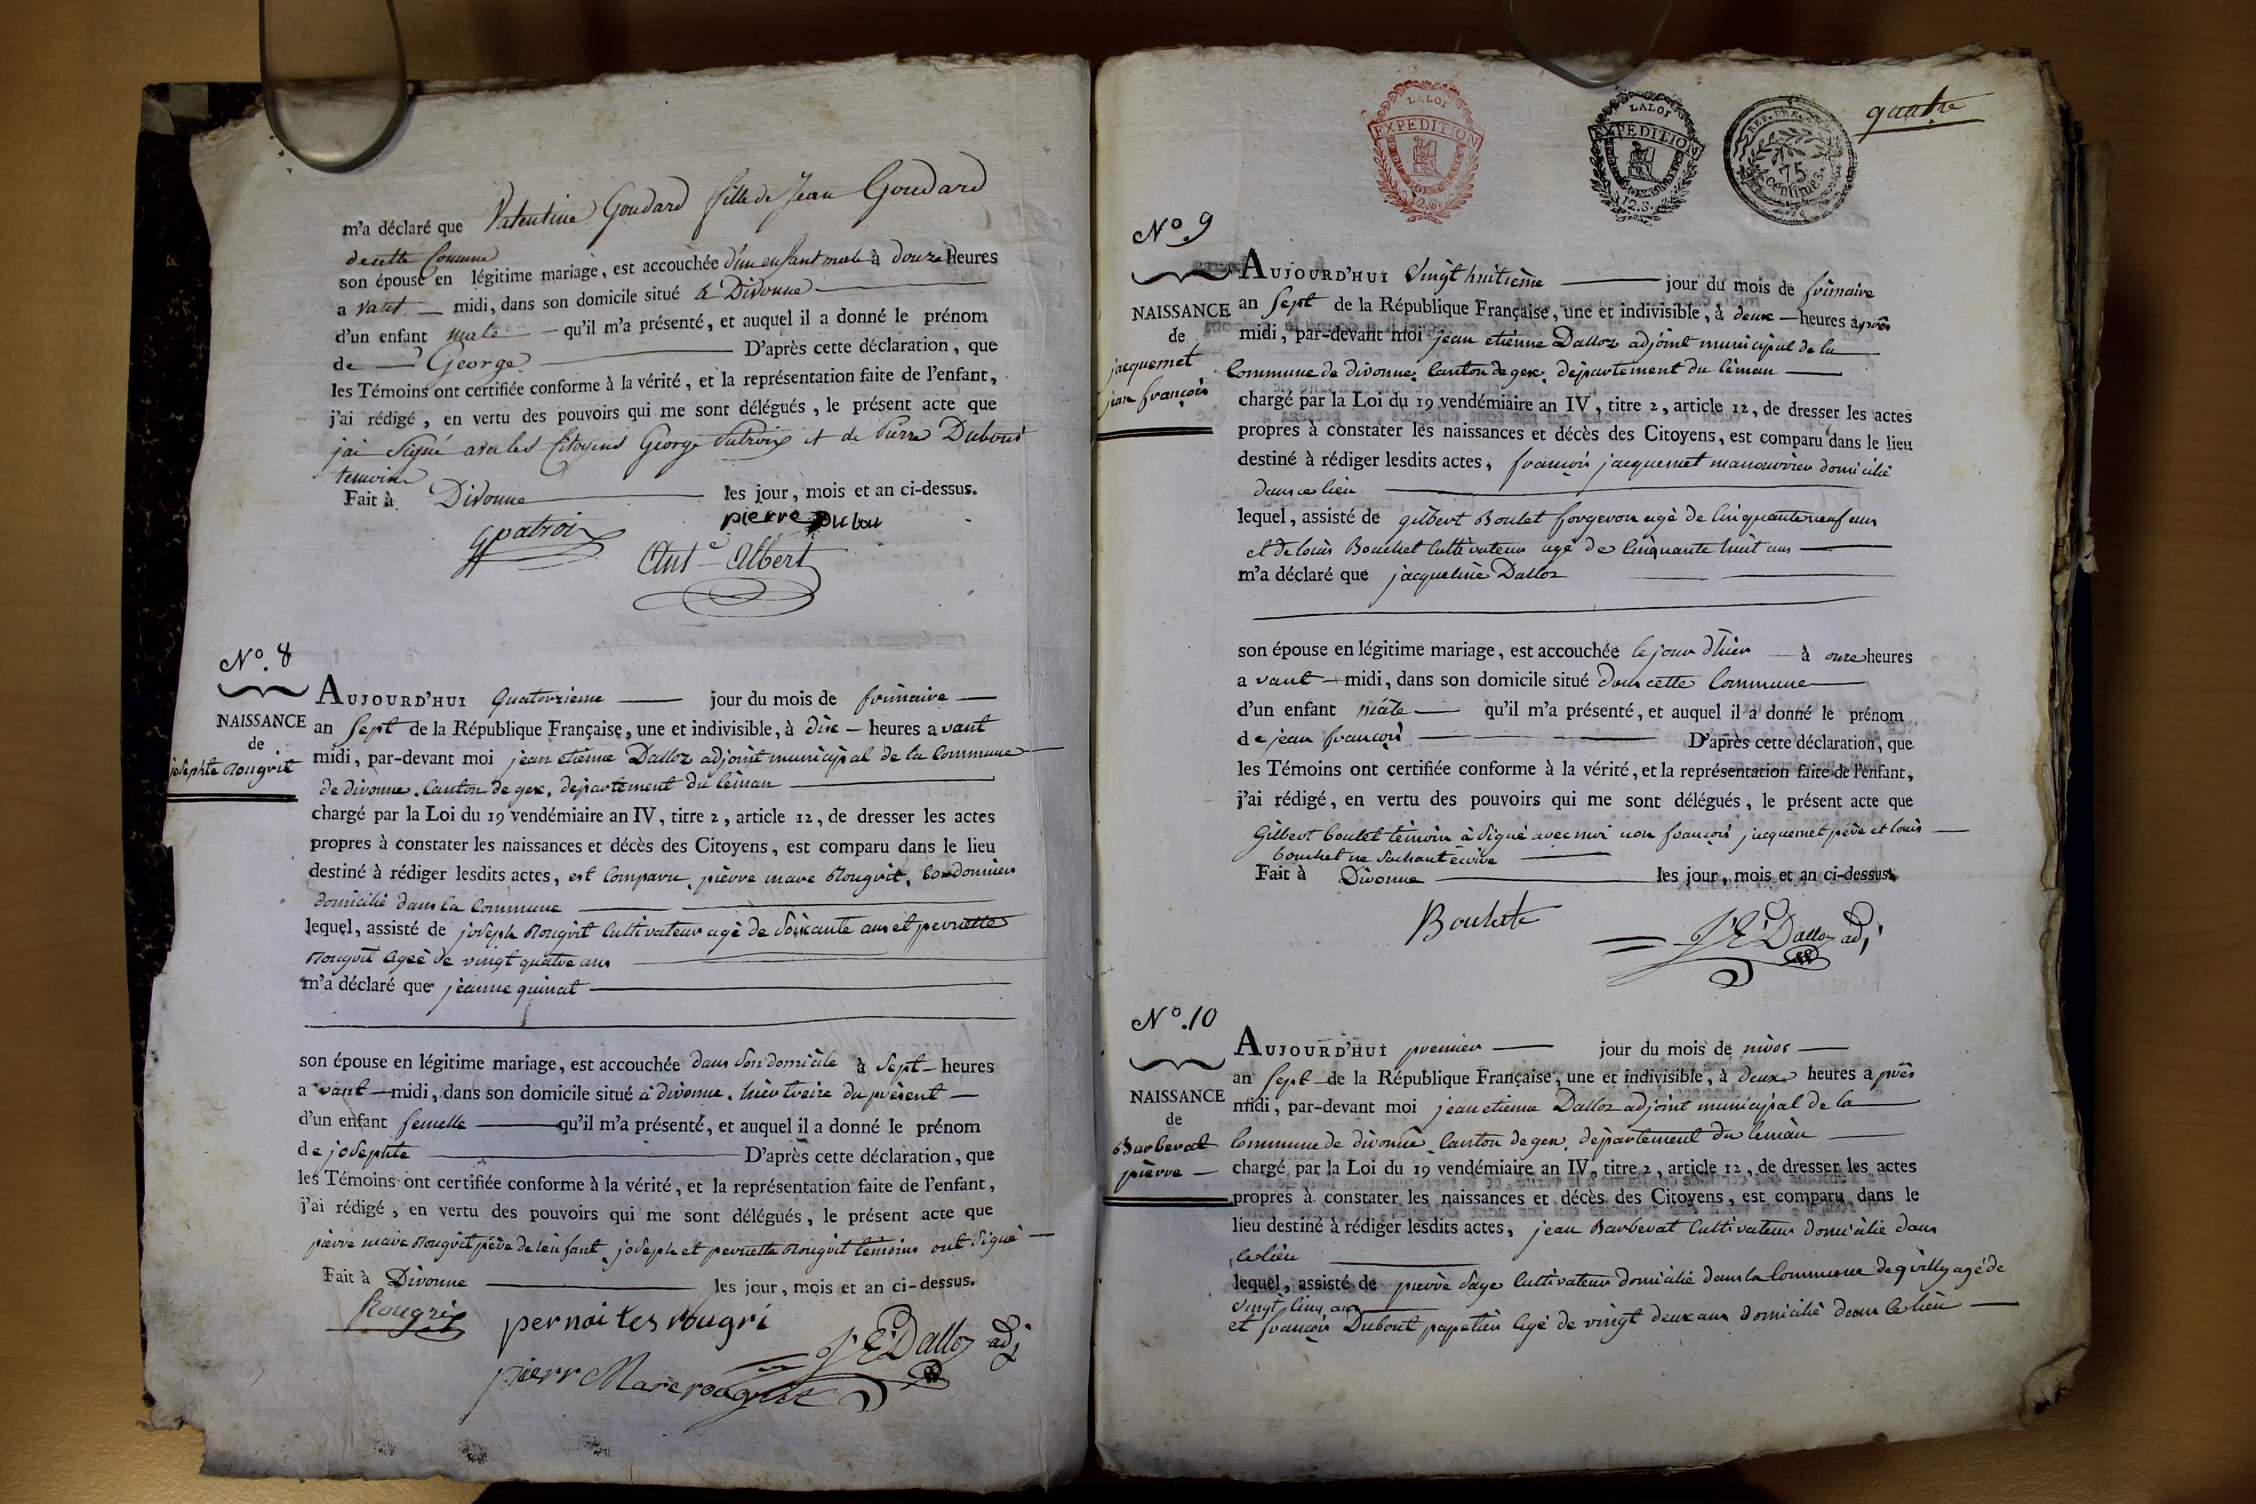 m'a déclaré que Valentine Goudard fille de Jean Goudard
de cette Comune
son épouse en légitime mariage, est accouchée d'un enfant male à douze heures
a vant midi, dans son domicile situé a Divonne
d'un enfant male qu'il m'a présenté, et auquel il a donné le prénom
de George D'après cette déclaration, que
les Témoins ont certifiée conforme à la vérité, et la représentation faite de l'enfant,
j'ai rédigé, en vertu des pouvoirs qui me sont délégués, le présent acte que
jai Signé avec les Citoyens George Patroix et de Pierre Dubout
temoins
Fait à Divonne les jour, mois et an ci-dessus.
gpatroix pierre Dubou
Ant.e Albert
No. 8
NAISSANCE
de
josephte Rougrit
AUJOURD'HUI quatorzieme jour du mois de frimaire
an Sept de la République Française, une et indivisible, à dix heures a vant
midi, par-devant moi jean etienne Dalloz adjoint municipal de la Commune
de divonne. Canton de gex. departement du leman
chargé par la Loi du 19 vendémiaire an IV, titre 2, article 12, de dresser les actes
propres à constater les naissances et décès des Citoyens, est comparu dans le lieu
destiné à rédiger lesdits actes, est Comparu pierre marc Rougrit, Cordonnier
domicilié dans la Commune
lequel, assisté de joseph Rougrit Cultivateur agé de Soixante ans et pernette
Rougrit Ageé de vingt quatre ans
m'a déclaré que jeanne quinat
son épouse en légitime mariage, est accouchée dans Son domicile à Sept heures
a vant midi, dans son domicile situé à divonne. hier treize du présent
d'un enfant femelle qu'il m'a présenté, et auquel il a donné le prénom
de josephte D'après cette déclaration, que
les Témoins ont certifiée conforme à la vérité, et la représentation faite de l'enfant,
j'ai rédigé, en vertu des pouvoirs qui me sont délégués, le présent acte que
pierre marc Rougrit père de lenfant joseph et pernette Rougrit témoins ont Signé
Fait à Divonne les jour, mois et an ci-dessus.
Rougrit pernaites rougri
J E Dalloz adj
pierr Marc rougrit
quatre
LA LOI
EXPEDITION
12.S.
LA LOI
EXPEDITION
12.S.
REP. FRA.
75
centimes
No. 9
NAISSANCE
de
jacquemet
jean françois
AUJOURD'HUI Vingt huitième jour du mois de frimaire
an Sept de la République Française, une et indivisible, à deux heures après
midi, par-devant moi jean etienne Dalloz adjoint municipal de la
Commune de divonne. Canton de gex. departement du leman
chargé par la Loi du 19 vendémiaire an IV, titre 2, article 12, de dresser les actes
propres à constater les naissances et décès des Citoyens, est comparu dans le lieu
destiné à rédiger lesdits actes, françois jacquemet manouvrier domicilié
dans ce lieu
lequel, assisté de gilbert Boulet forgeron agé de Cinquante neuf ans
et de louis Bouchet Cultivateur agé de Cinquante huit ans
m'a déclaré que jacqueline Dalloz
son épouse en légitime mariage, est accouchée le jour d'hier à onze heures
a vant midi, dans son domicile situé dans cette Commune
d'un enfant mâle qu'il m'a présenté, et auquel il a donné le prénom
de jean françois D'après cette déclaration, que
les Témoins ont certifiée conforme à la vérité, et la représentation faite de l'enfant,
j'ai rédigé, en vertu des pouvoirs qui me sont délégués, le présent acte que
Gilbert boulet témoin à Signé avec moi non françois jacquemet père et louis
bouchet ne Sachant écrire
Fait à Divonne les jour, mois et an ci-dessus.
Boulet J E Dalloz adj
No. 10
NAISSANCE
de
Barberat
pierre
AUJOURD'HUI premier jour du mois de nivos
an Sept de la République Française, une et indivisible, à deux heures a près
midi, par-devant moi jean etienne Dalloz adjoint municipal de la
Commune de divonne Canton de gex departement du leman
chargé par la Loi du 19 vendémiaire an IV, titre 2, article 12, de dresser les actes
propres à constater les naissances et décès des Citoyens, est comparu dans le
lieu destiné à rédiger lesdits actes, jean Barberat Cultivateur domicilié dans
ce lieu
lequel, assisté de pierre Sage Cultivateur domicilié dans la Commune de grilly agé de
vingt Cinq ans
et françois Dubout papetier Agé de vingt deux ans domicilié dans ce lieu